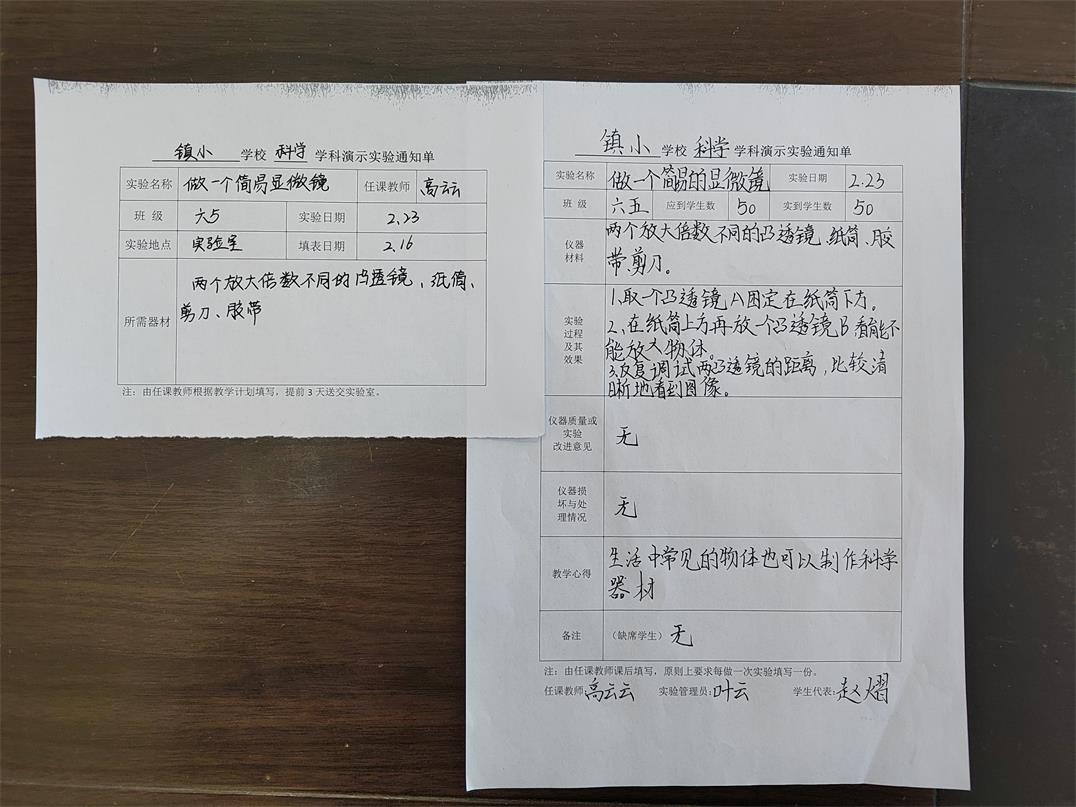 镇小 学校 科学 学科演示实验通知单
实验名称 做一个简易显微镜 任课教师 高云云
班 级 六5 实验日期 2.23
实验地点 实验室 填表日期 2.16
所需器材 两个放大倍数不同的凸透镜、纸筒、
剪刀、胶带
注：由任课教师根据教学计划填写，提前 3 天送交实验室。
镇小 学校 科学 学科演示实验通知单
实验名称 做一个简易的显微镜 实验日期 2.23
班 级 六五 应到学生数 50 实到学生数 50
仪器
材料
两个放大倍数不同的凸透镜、纸筒、胶
带、剪刀。
实验
过程
及其
效果
1、取一个凸透镜A固定在纸筒下方。
2、在纸筒上方再放一个凸透镜B看能不
能放大物体。
3、反复调试两凸透镜的距离，比较清
晰地看到图像。
仪器质量或
实验
改进意见
无
仪器损
坏与处
理情况
无
教学心得
生活中常见的物体也可以制作科学
器材
备注 （缺席学生） 无
注：由任课教师课后填写，原则上要求每做一次实验填写一份。
任课教师:高云云 实验管理员:叶云 学生代表:赵熠